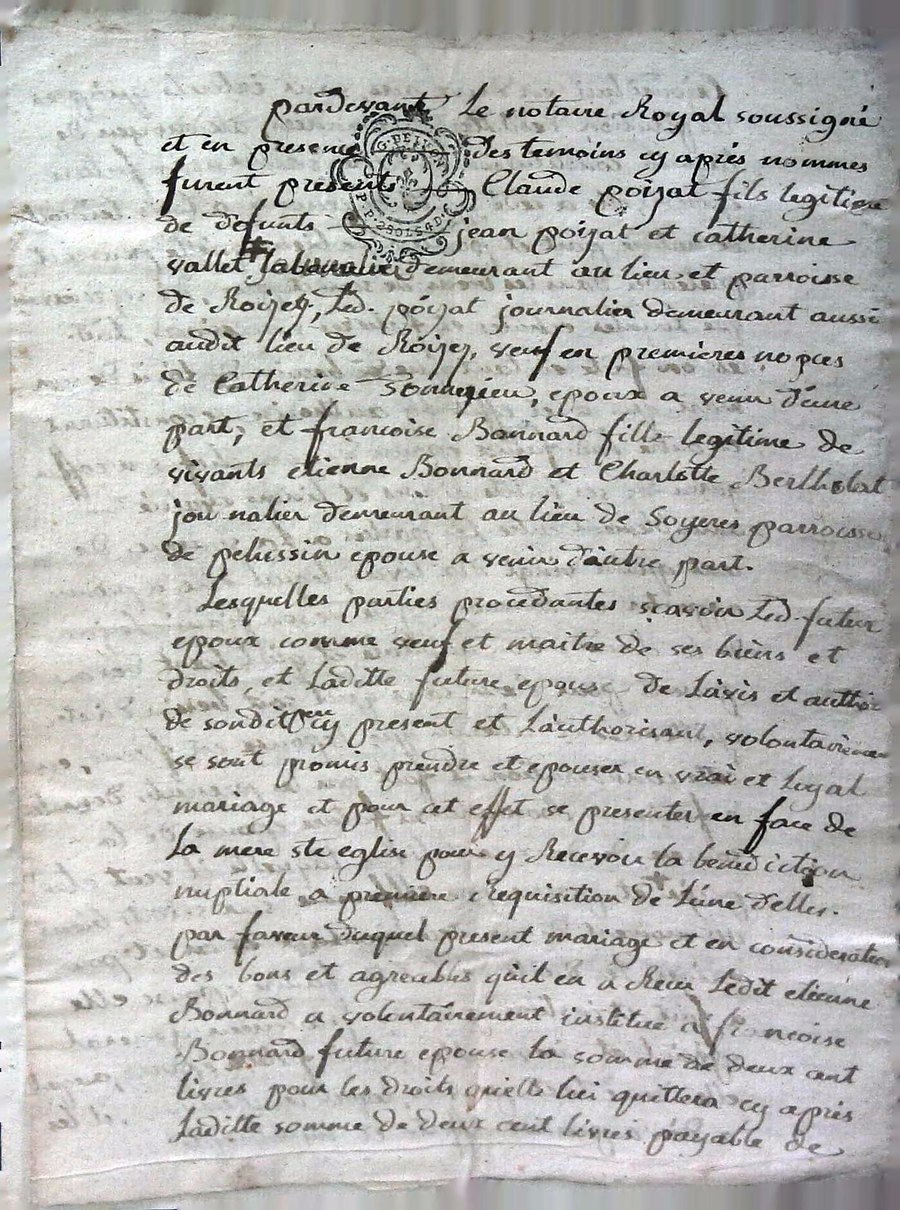 pardevant Le notaire Royal soussigné
et en presence des temoins cy après nommes
furent presents Claude poizat fils legitime
de defunts jean poizat et catherine
vallet demeurant au lieu et parroisse
de Roizey, Led. poizat journalier demeurant aussi
audit lieu de Roizey, veuf en premieres nopces
de Catherine, epoux a venir d'une
part, et francoise Bonnard fille legitime de
vivants etienne Bonnard et Charlotte Bertholat
journalier demeurant au lieu de Soyeres parroisse
de pelussin epouse a venir d'autre part.
Lesquelles parties procedantes scavoir Led. futur
epoux comme veuf et maitre de ses biens et
droits, et Laditte future epouse de L'avis et author
de sondit pere cy present et L'authorisant, volontairement
se sont promis prendre et epouser en vrai et Loyal
mariage et pour cet effet se presenter en face de
La mere ste eglise pour y Recevoir la benediction
nuptiale a premiere Requisition de L'une d'elles.
par faveur duquel present mariage et en consideration
des bons et agreables qu'il en a Recu Ledit etienne
Bonnard a volontairement institué a francoise
Bonnard future epouse la somme de deux cent
livres pour les droits quelle lui quittera cy après
Laditte somme de deux cent livres payable de